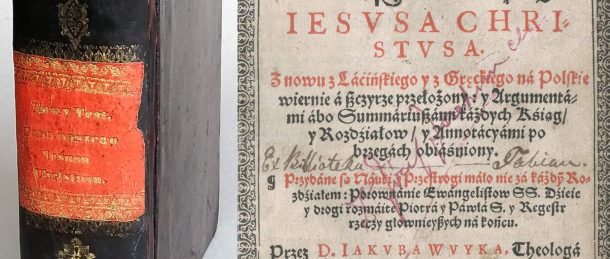 Nowy Test.
naszego
IESVSA CHRI-
STVSA.
Z nowu z Láćińskiego y z Greckiego ná Polskie
wiernie á ßczyrze przełożony / y Argumentá-
mi ábo Summáriußámi káżdych Kśiąg /
y Rozdźiałow / y Annotácyámi po
brzegách obiáśniony.
Ex Biblioteka Fabian.
¶ Przydáne są Náuki y Przestrogi máło nie zá káżdy Ro-
zdźiałem : Porownánie Ewángelistow SS. Dźieie
y drogi rozmáite Piotrá y Páwłá S. y Regestr
rzeczy głownieyßych ná końcu.
Przez D. IAKVBA WVYKA, Theologá